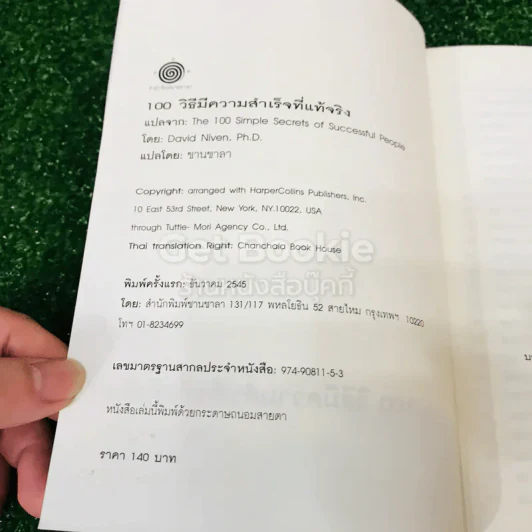 100 วิธีมีความสำเร็จที่แท้จริง
แปลจาก: The 100 Simple Secrets of Successful People
โดย: David Niven, Ph.D.
แปลโดย: ชานชาลา
Copyright: arranged with HarperCollins Publishers, Inc.
10 East 53rd Street, New York, NY.10022, USA
through Tuttle- Mori Agency Co., Ltd.
Thai translation Right: Chanchala Book House
Get Bookie
ร้านหนังสือบุ๊คกี้
พิมพ์ครั้งแรก: ธันวาคม 2545
โดย: สำนักพิมพ์ชานชาลา 131/117 พหลโยธิน 52 สายไหม กรุงเทพฯ 10220
โทฯ 01-8234699
เลขมาตรฐานสากลประจำหนังสือ: 974-90811-5-3
หนังสือเล่มนี้พิมพ์ด้วยกระดาษถนอมสายตา
ราคา 140 บาท